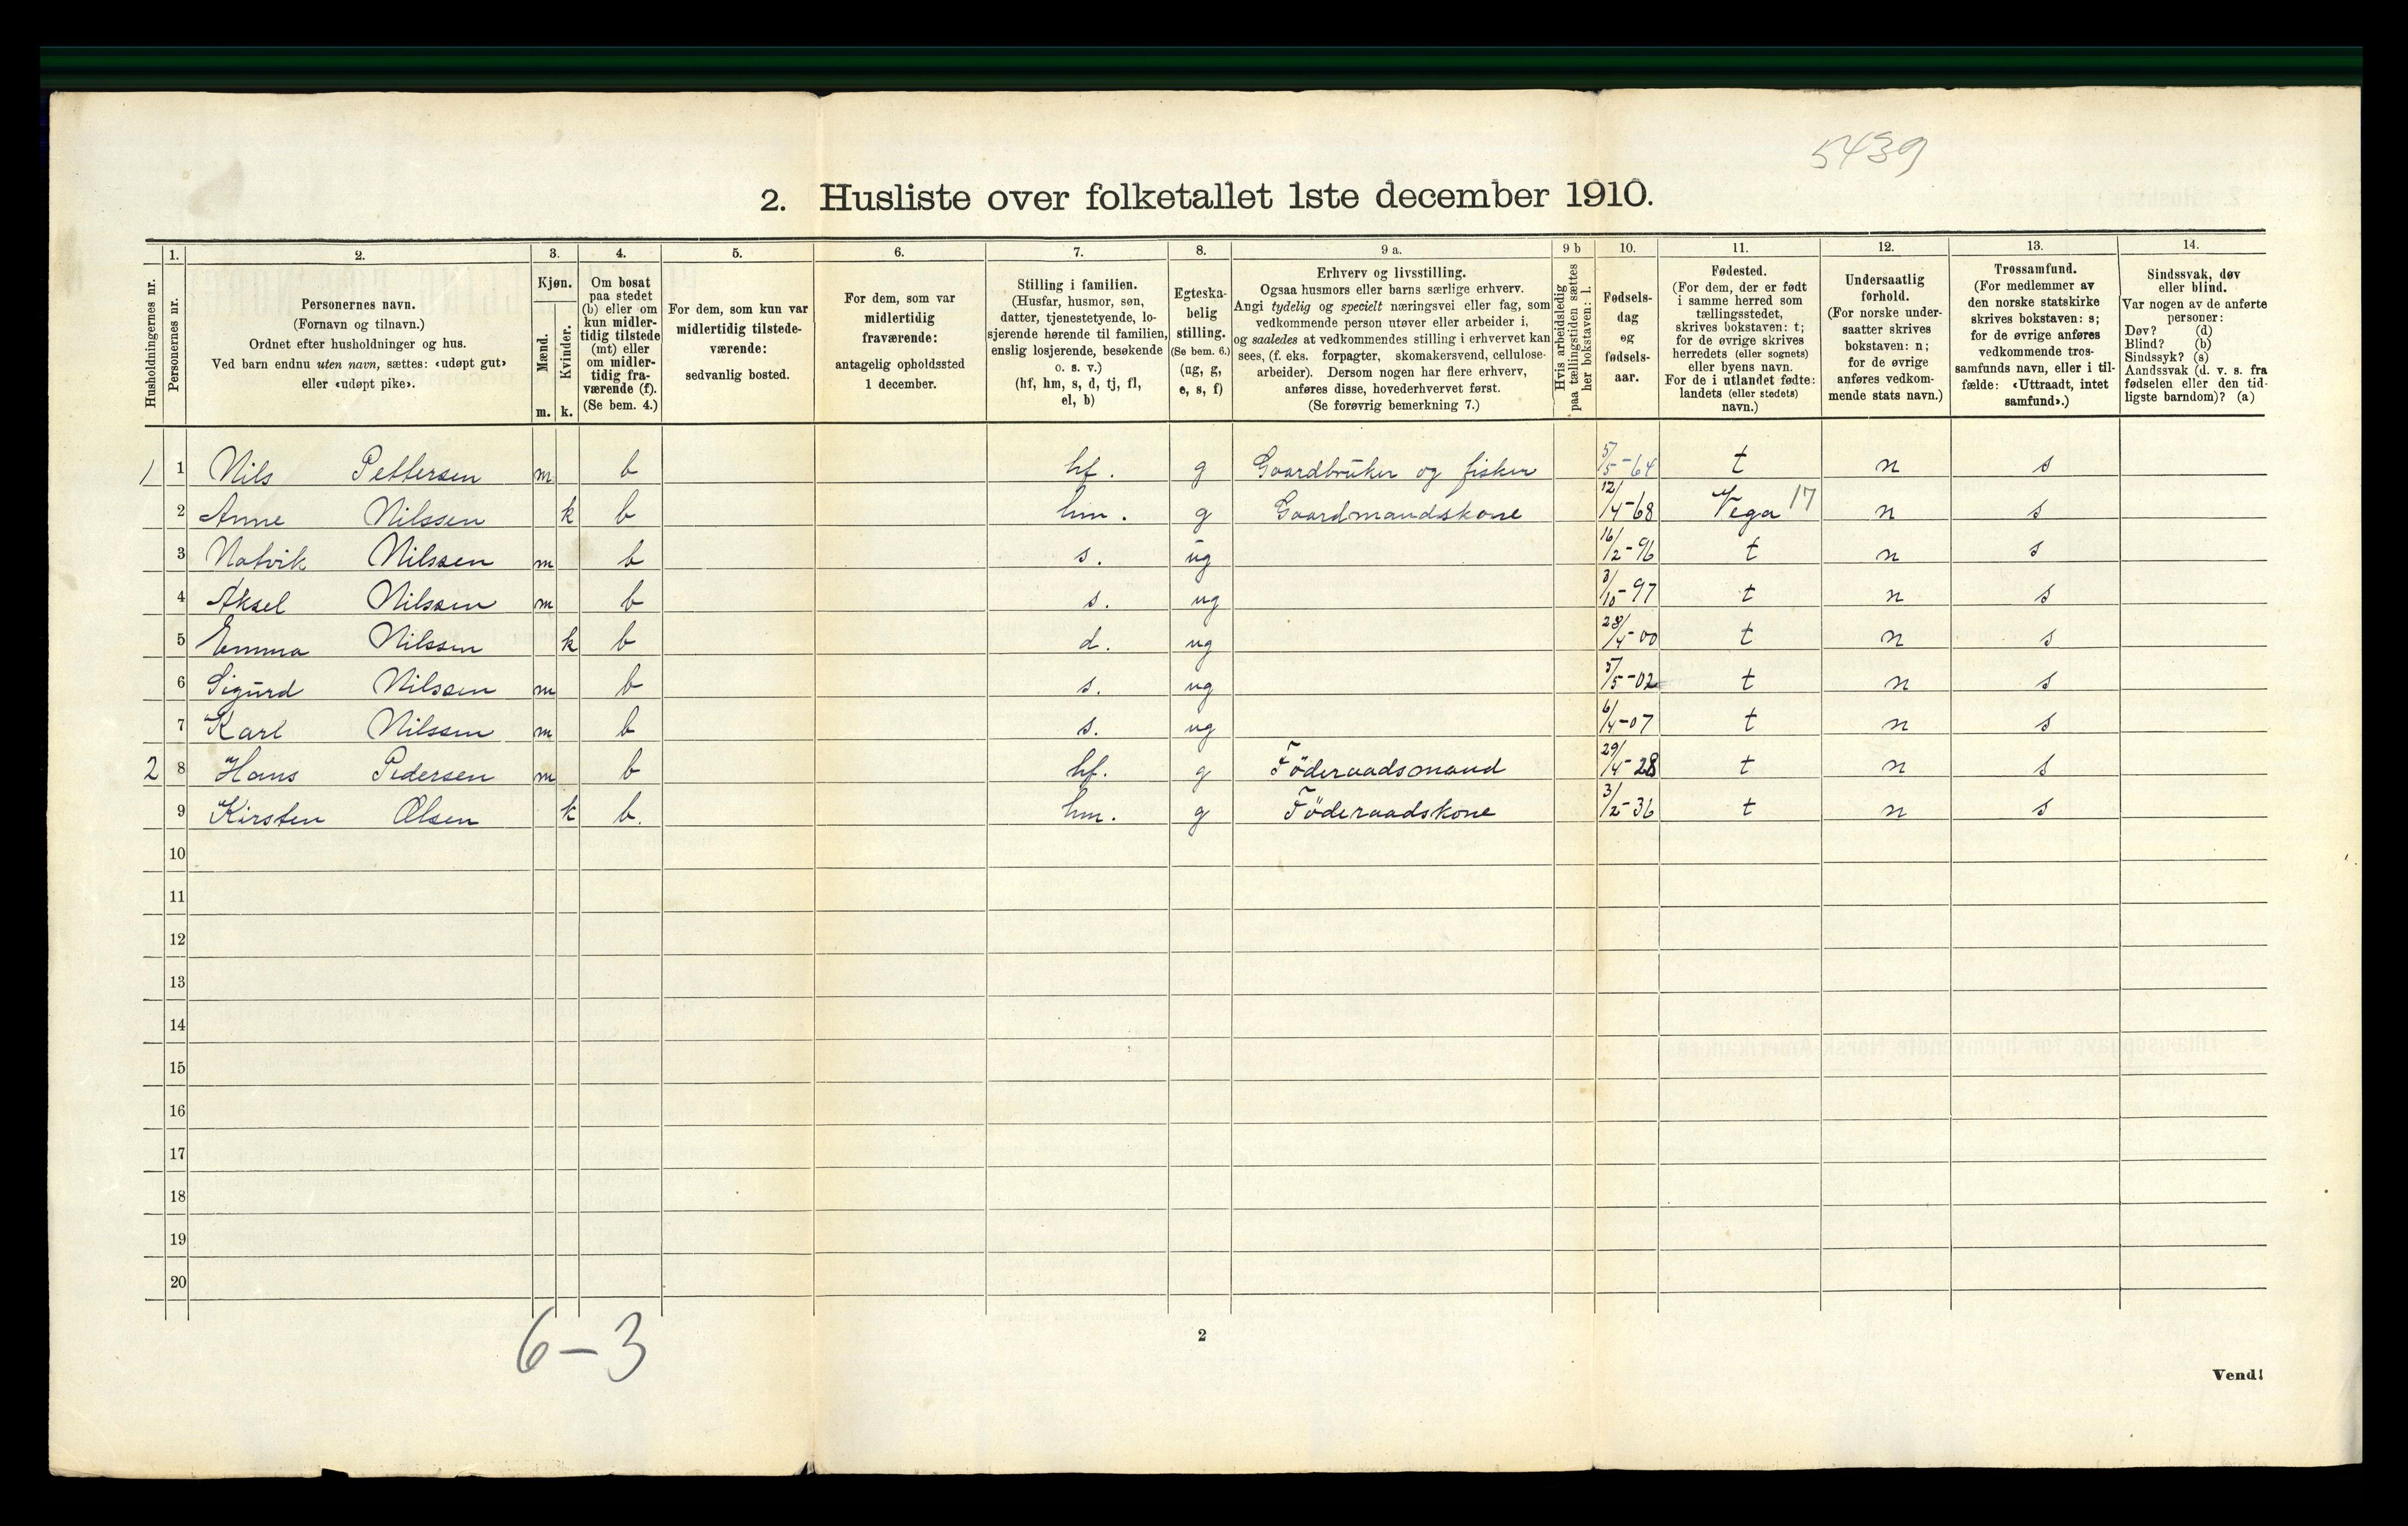 5439
2. Husliste over folketallet 1ste december 1910.
1. 2. 3. 4. 5. 6. 7. 8. 9 a. 9 b 10. 11. 12. 13. 14.
Husholdningernes nr.
Personernes nr.
Personernes navn.
(Fornavn og tilnavn.)
Ordnet efter husholdninger og hus.
Ved barn endnu uten navn, sættes: «udøpt gut»
eller «udøpt pike».
Kjøn.
Mænd.
Kvinder.
m. k.
Om bosat
paa stedet
(b) eller om
kun midler-
tidig tilstede
(mt) eller
om midler-
tidig fra-
værende (f).
(Se bem. 4.)
For dem, som kun var
midlertidig tilstede-
værende:
sedvanlig bosted.
For dem, som var
midlertidig
fraværende:
antagelig opholdssted
1 december.
Stilling i familien.
(Husfar, husmor, søn,
datter, tjenestetyende, lo-
sjerende hørende til familien,
enslig losjerende, besøkende
o. s. v.)
(hf, hm, s, d, tj, fl,
el, b)
Egteska-
belig
stilling.
(Se bem. 6.)
(ug, g,
e, s, f)
Erhverv og livsstilling.
Ogsaa husmors eller barns særlige erhverv.
Angi tydelig og specielt næringsvei eller fag, som
vedkommende person utøver eller arbeider i,
og saaledes at vedkommendes stilling i erhvervet kan
sees, (f. eks. forpagter, skomakersvend, cellulose-
arbeider). Dersom nogen har flere erhverv,
anføres disse, hovederhvervet først.
(Se forøvrig bemerkning 7.)
Hvis arbeidsledig
paa tællingstiden sættes
her bokstaven: l.
Fødsels-
dag
og
fødsels-
aar.
Fødested.
(For dem, der er født
i samme herred som
tællingsstedet,
skrives bokstaven: t;
for de øvrige skrives
herredets (eller sognets)
eller byens navn.
For de i utlandet fødte:
landets (eller stedets)
navn.)
Undersaatlig
forhold.
(For norske under-
saatter skrives
bokstaven: n;
for de øvrige
anføres vedkom-
mende stats navn.)
Trossamfund.
(For medlemmer av
den norske statskirke
skrives bokstaven: s;
for de øvrige anføres
vedkommende tros-
samfunds navn, eller i til-
fælde: «Uttraadt, intet
samfund».)
Sindssvak, døv
eller blind.
Var nogen av de anførte
personer:
Døv? (d)
Blind? (b)
Sindssyk? (s)
Aandssvak (d. v. s. fra
fødselen eller den tid-
ligste barndom)? (a)
1 1 Nils Pettersen m b hf. g Gaardbruker og fisker 5/5-64 t n s
2 Anne Nilssen k b hm. g Gaardmandskone 12/4-68 Vega 17 n s
3 Notvik Nilssen m b s. ug 16/2-96 t n s
4 Aksel Nilssen m b s. ug 3/10-97 t n s
5 Emma Nilssen k b d. ug 28/4-00 t n s
6 Sigurd Nilssen m b s. ug 5/5-02 t n s
7 Karl Nilssen m b s. ug 6/4-07 t n s
2 8 Hans Pedersen m b hf. g Föderaadsmand 29/4-28 t n s
9 Kirsten Olsen k b. hm. g Föderaadskone 3/2-36 t n s
10
11
12
13
14
15
16
17
18
19
20
6-3
2
Vend!